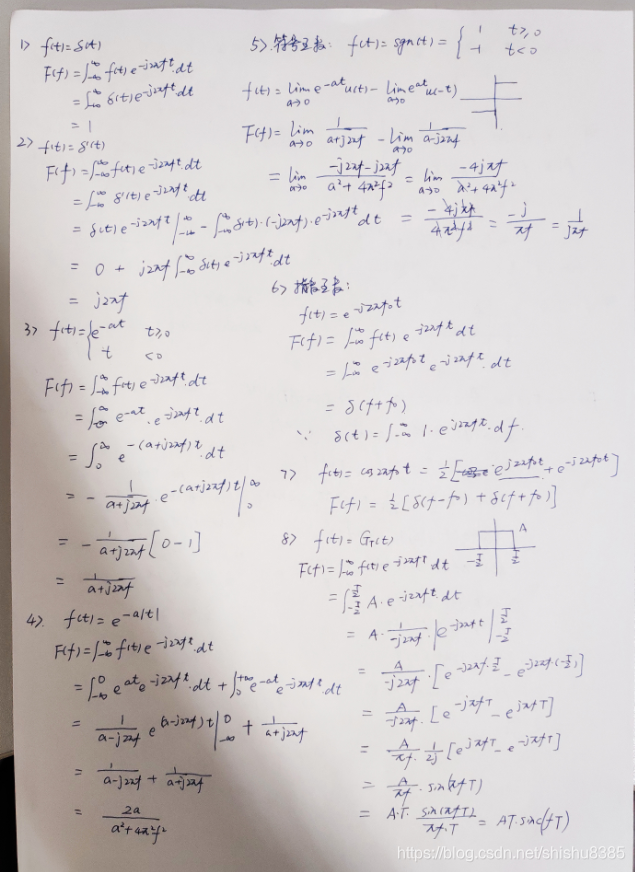 1) f(t)=δ(t)
F(f)=∫_{-∞}^{∞} f(t) e^{-j2πft}·dt
=∫_{-∞}^{∞} δ(t) e^{-j2πft}dt
= 1
2) f(t)=δ'(t)
F(f)=∫_{-∞}^{∞} f(t) e^{-j2πft}·dt
=∫_{-∞}^{∞} δ'(t) e^{-j2πft}dt
= δ(t) e^{-j2πft}|_{-∞}^{∞} - ∫_{-∞}^{∞} δ(t)·(-j2πf)·e^{-j2πft}dt
= 0 + j2πf ∫_{-∞}^{∞} δ(t) e^{-j2πft}·dt
= j2πf
3) f(t)={e^{-at} t≥0
t <0
F(f)=∫_{-∞}^{∞} f(t) e^{-j2πft}·dt
=∫_{0}^{∞} e^{-at}·e^{-j2πft}·dt
=∫_{0}^{∞} e^{-(a+j2πf)t}·dt
= - 1/(a+j2πf)·e^{-(a+j2πf)t}|_{0}^{∞}
= - 1/(a+j2πf) [0-1]
= 1/(a+j2πf)
4) f(t)=e^{-a|t|}
F(f)=∫_{-∞}^{∞} f(t) e^{-j2πft}·dt
=∫_{-∞}^{0} e^{at} e^{-j2πft}·dt + ∫_{0}^{+∞} e^{-at} e^{-j2πft}·dt
= 1/(a-j2πf) e^{(a-j2πf)t}|_{-∞}^{0} + 1/(a+j2πf)
= 1/(a-j2πf) + 1/(a+j2πf)
= 2a/(a²+4π²f²)
5) 符号函数: f(t)=sgn(t)={ 1 t≥0
-1 t<0
f(t)=lim_{a→0} e^{-at}u(t) - lim_{a→0} e^{at}u(-t)
F(f)=lim_{a→0} 1/(a+j2πf) - lim_{a→0} 1/(a-j2πf)
= lim_{a→0} (-j2πf-j2πf)/(a²+4π²f²) = lim_{a→0} -4jπf/(a²+4π²f²)
= -4jπf/4π²f² = -j/πf = 1/jπf
6) 指数函数:
f(t)=e^{-j2πf₀t}
F(f)=∫_{-∞}^{∞} f(t) e^{-j2πft}dt
=∫_{-∞}^{∞} e^{-j2πf₀t} e^{-j2πft}·dt
= δ(f+f₀)
∵ δ(t)=∫_{-∞}^{∞} 1·e^{j2πft}·df
7) f(t)=cos2πf₀t = 1/2[e^{j2πf₀t}+e^{-j2πf₀t}]
F(f)=1/2[δ(f-f₀)+δ(f+f₀)]
8) f(t)=G_T(t) A
-T/2 T/2
F(f)=∫_{-∞}^{∞} f(t) e^{-j2πft}dt
=∫_{-T/2}^{T/2} A·e^{-j2πft}·dt
= A·1/(-j2πf)·|e^{-j2πft}|_{-T/2}^{T/2}
= A/(-j2πf)·[e^{-j2πf·T/2} - e^{-j2πf(-T/2)}]
= A/(-j2πf)·[e^{-jπfT} - e^{jπfT}]
= A/πf·1/2j[e^{jπfT} - e^{-jπfT}]
= A/πf·sin(πfT)
= A·T·sin(πfT)/πf·T = AT·sinc(fT)
https://blog.csdn.net/shishu8385